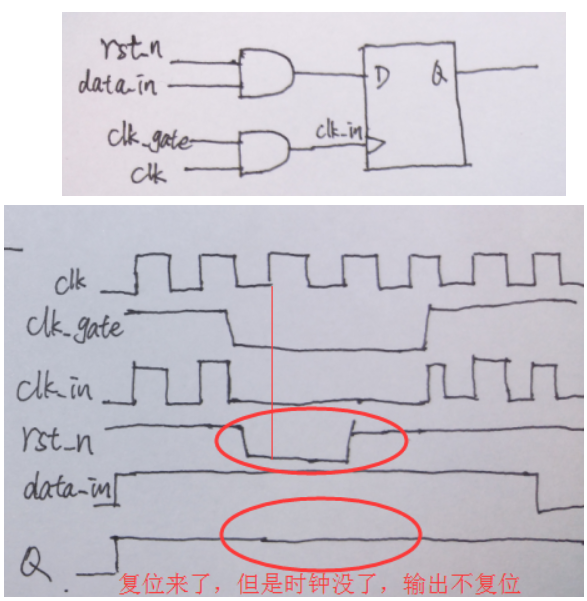 rst_n
data_in
clk_gate
clk
clk_in
D
Q
clk
clk_gate
clk_in
rst_n
data_in
Q
复位来了，但是时钟没了，输出不复位